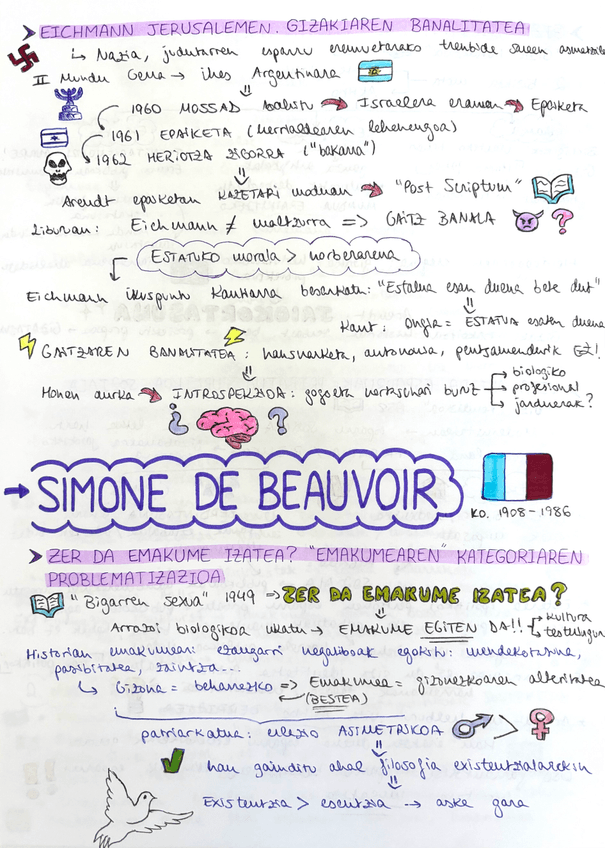 > EICHMANN JERUSALEMEN. GIZAKIAREN BANALITATEA
↳ Nazia, judutarren esparru eremuetarako trenbide sareen
II Mundu Gerra → ihes Argentinara
1960 MOSSAD → Israelera eraman → Epaiketa
1961 EPAIKETA (herrialdearen lehenengoa)
1962 HERIOTZA ZIGORRA ("bakarra")
Arendt epaiketan KAZETARI moduan → "Post Scriptum"
Liburuan: Eichmann ≠ maltzurra => GAITZ BANALA ?
ESTATUKO morala > norberarena
Eichmann ikuspuntu Kantiarra besarkatu: "Estatua esan duena bete dut"
Kant: ongia = ESTATUA esaten duena
GAITZAREN BANALITATEA: hausnarketa, autonomia, pentsamendurik EZ!
Honen aurka → INTROSPEKZIOA: gogoeta norberari buruz
biologiko
profesional
jarduerak?
¿ ?
→ SIMONE DE BEAUVOIR
K.O. 1908-1986
> ZER DA EMAKUME IZATEA? "EMAKUMEAREN" KATEGORIAREN
PROBLEMATIZAZIOA
"Bigarren Sexua" 1949 → ZER DA EMAKUME IZATEA?
Arrazoi biologikoa ukatu → EMAKUME EGITEN DA!!
kultura
testuingurua
Historian emakumeari ezaugarri negatiboak egokitu: mendekotasuna,
pasibitatea, zaintza...
↳ Gizona = beharrezko => Emakumea = gizonezkoaren alteritatea
(BESTEA)
patriarkatua: erlazio ASIMETRIKOA ♂ > ♀
hau gainditu ahal filosofia existentzialarekin
Existentzia > esentzia → aske gara